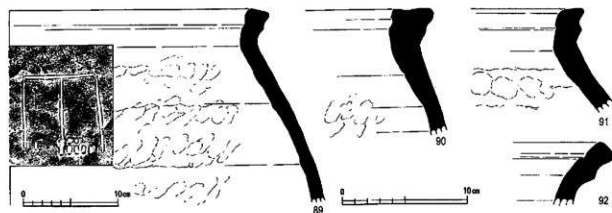 0 10cm
89
90
0 10cm
91
92